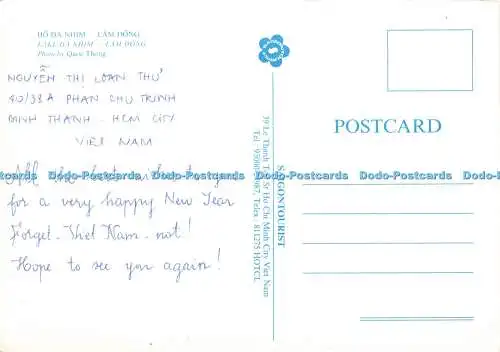 HỒ ĐA NHIM - LÂM ĐỒNG
LAKE DA NHIM - LAM DONG
Photo by Quoc Thong
NGUYỄN THỊ LOAN THƯ
40/38A PHAN CHU TRINH
BINH THANH - HCM CITY
VIET NAM
All the best wishes to you
for a very happy New Year
Forget - Viet Nam - not!
Hope to see you again!
Dodo-Postcards Dodo-Postcards Dodo-Postcards Dodo-Postcards Dodo-Postcards
SAIGONTOURIST
Ho Chi Minh City Viet Nam
Telex: 811275 HOTCL
POSTCARD